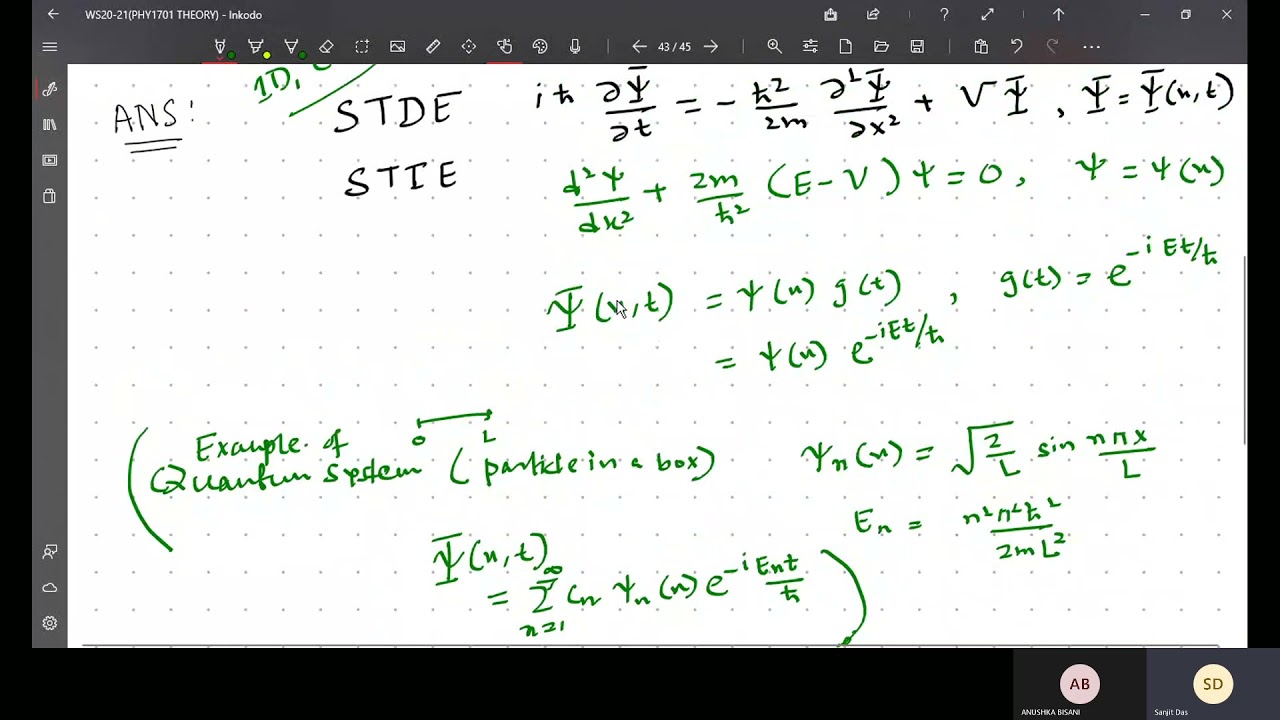 WS20-21(PHY1701 THEORY) - Inkodo
43 / 45
1D,
ANS: STDE iħ ∂Ψ̄/∂t = - ħ²/2m ∂²Ψ̄/∂x² + VΨ̄ , Ψ̄ = Ψ̄(x,t)
STIE d²ψ/dx² + 2m/ħ² (E-V)ψ = 0, ψ = ψ(x)
Ψ̄(x,t) = ψ(x) g(t) , g(t) = e^{-iEt/ħ}
= ψ(x) e^{-iEt/ħ}
0 L
(Example of
Quantum system (particle in a box) ψₙ(x) = √(2/L) sin nπx/L
Eₙ = n²π²ħ²/2mL²
Ψ̄(x,t)
= ∑_{n=1}^{∞} Cₙ ψₙ(x) e^{-iEₙt/ħ} )
AB SD
ANUSHKA BISANI Sanjit Das